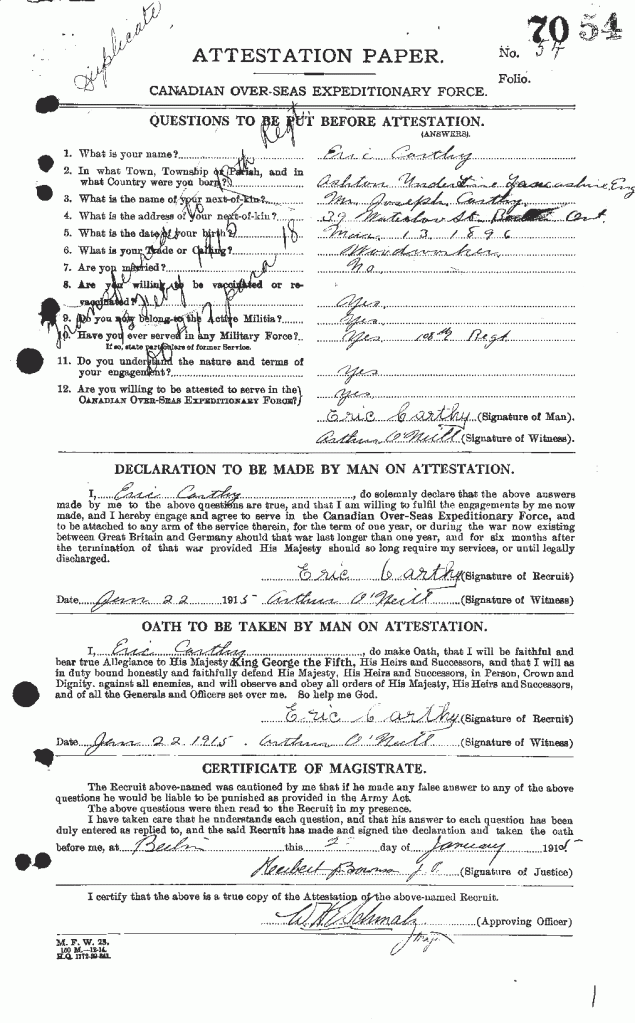 Duplicate
70 54
No. 37
Folio.
ATTESTATION PAPER.
CANADIAN OVER-SEAS EXPEDITIONARY FORCE.
QUESTIONS TO BE PUT BEFORE ATTESTATION.
(ANSWERS).
1. What is your name? Eric Carthy
2. In what Town, Township or Parish, and in
what Country were you born? Ashton Under Line Lancashire Eng
3. What is the name of your next-of-kin? Mr. Joseph Carthy
4. What is the address of your next-of-kin? 39 Waterloo St. Ont.
5. What is the date of your birth? Mar. 13 1896
6. What is your Trade or Calling? Woodworker
7. Are you married? No
8. Are you willing to be vaccinated or re-
vaccinated? Yes
9. Do you now belong to the Active Militia? Yes
10. Have you ever served in any Military Force? Yes 108th Regt
If so, state particulars of former Service.
11. Do you understand the nature and terms of
your engagement? Yes
12. Are you willing to be attested to serve in the
CANADIAN OVER-SEAS EXPEDITIONARY FORCE? Yes
Eric Carthy (Signature of Man).
Arthur O'Neill (Signature of Witness).
DECLARATION TO BE MADE BY MAN ON ATTESTATION.
I, Eric Carthy, do solemnly declare that the above answers
made by me to the above questions are true, and that I am willing to fulfil the engagements by me now
made, and I hereby engage and agree to serve in the Canadian Over-Seas Expeditionary Force, and
to be attached to any arm of the service therein, for the term of one year, or during the war now existing
between Great Britain and Germany should that war last longer than one year, and for six months after
the termination of that war provided His Majesty should so long require my services, or until legally
discharged.
Eric Carthy (Signature of Recruit)
Date Jan 22 1915 Arthur O'Neill (Signature of Witness)
OATH TO BE TAKEN BY MAN ON ATTESTATION.
I, Eric Carthy, do make Oath, that I will be faithful and
bear true Allegiance to His Majesty King George the Fifth, His Heirs and Successors, and that I will as
in duty bound honestly and faithfully defend His Majesty, His Heirs and Successors, in Person, Crown and
Dignity. against all enemies, and will observe and obey all orders of His Majesty, His Heirs and Successors,
and of all the Generals and Officers set over me. So help me God.
Eric Carthy (Signature of Recruit)
Date Jan 22 1915. Arthur O'Neill (Signature of Witness)
CERTIFICATE OF MAGISTRATE.
The Recruit above-named was cautioned by me that if he made any false answer to any of the above
questions he would be liable to be punished as provided in the Army Act.
The above questions were then read to the Recruit in my presence.
I have taken care that he understands each question, and that his answer to each question has been
duly entered as replied to, and the said Recruit has made and signed the declaration and taken the oath
before me, at Berlin this day of January 1915
J.P. (Signature of Justice)
I certify that the above is a true copy of the Attestation of the above-named Recruit.
Schmalz (Approving Officer)
Major
M. F. W. 23.
100 M.—12-14.
H.Q. 1772-39-841.
1